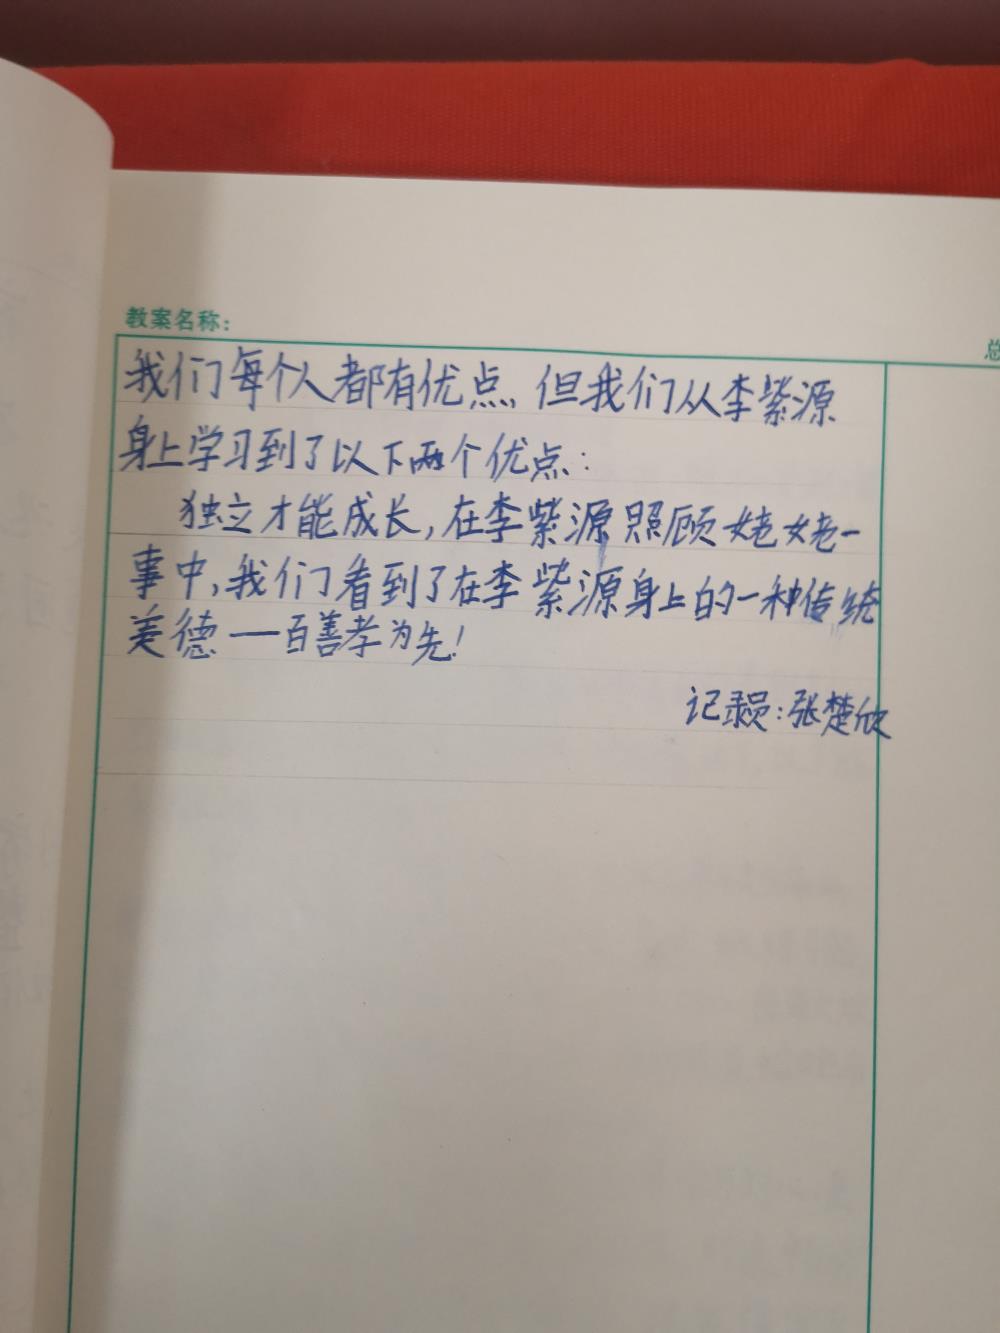 教案名称：
总
我们每个人都有优点，但我们从李紫源
身上学习到了以下两个优点：
独立才能成长，在李紫源照顾姥姥一
事中，我们看到了在李紫源身上的一种传统
美德一百善孝为先！
记录员：张楚欣